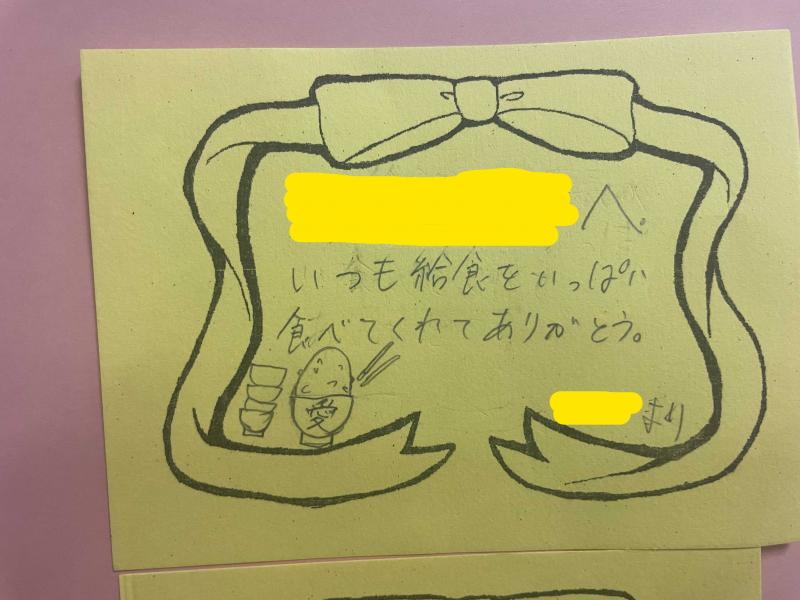 へ。
いつも給食をいっぱい
食べてくれてありがとう。
愛
より